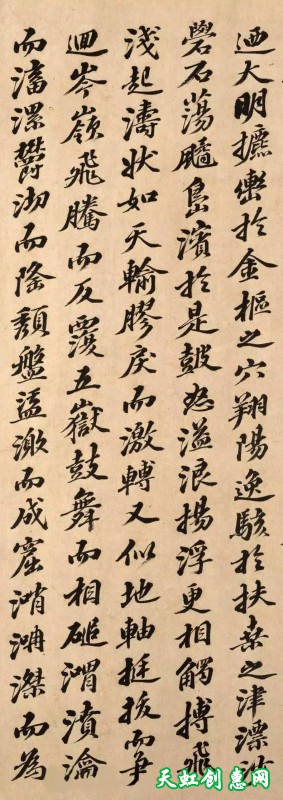 迺大明攄轡於金樞之穴翔陽逸駭於扶桑之津漂沙
礐石蕩颺島濱於是鼓怒溢浪揚浮更相觸搏飛
淺起濤狀如天輪膠戾而激轉又似地軸挺拔而爭
迴岑嶺飛騰而反覆五嶽鼓舞而相磓渭濆淪
而滀漯鬱沏而隆頹盤盓激而成窟㴥㳌滐而為
天虹创惠网